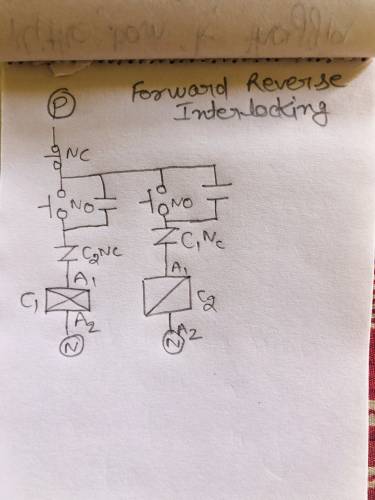 Forward Reverse
Interlocking
P
NC
NO
NO
C2 NC
C1 NC
A1
A1
C1
C2
A2
A2
N
N